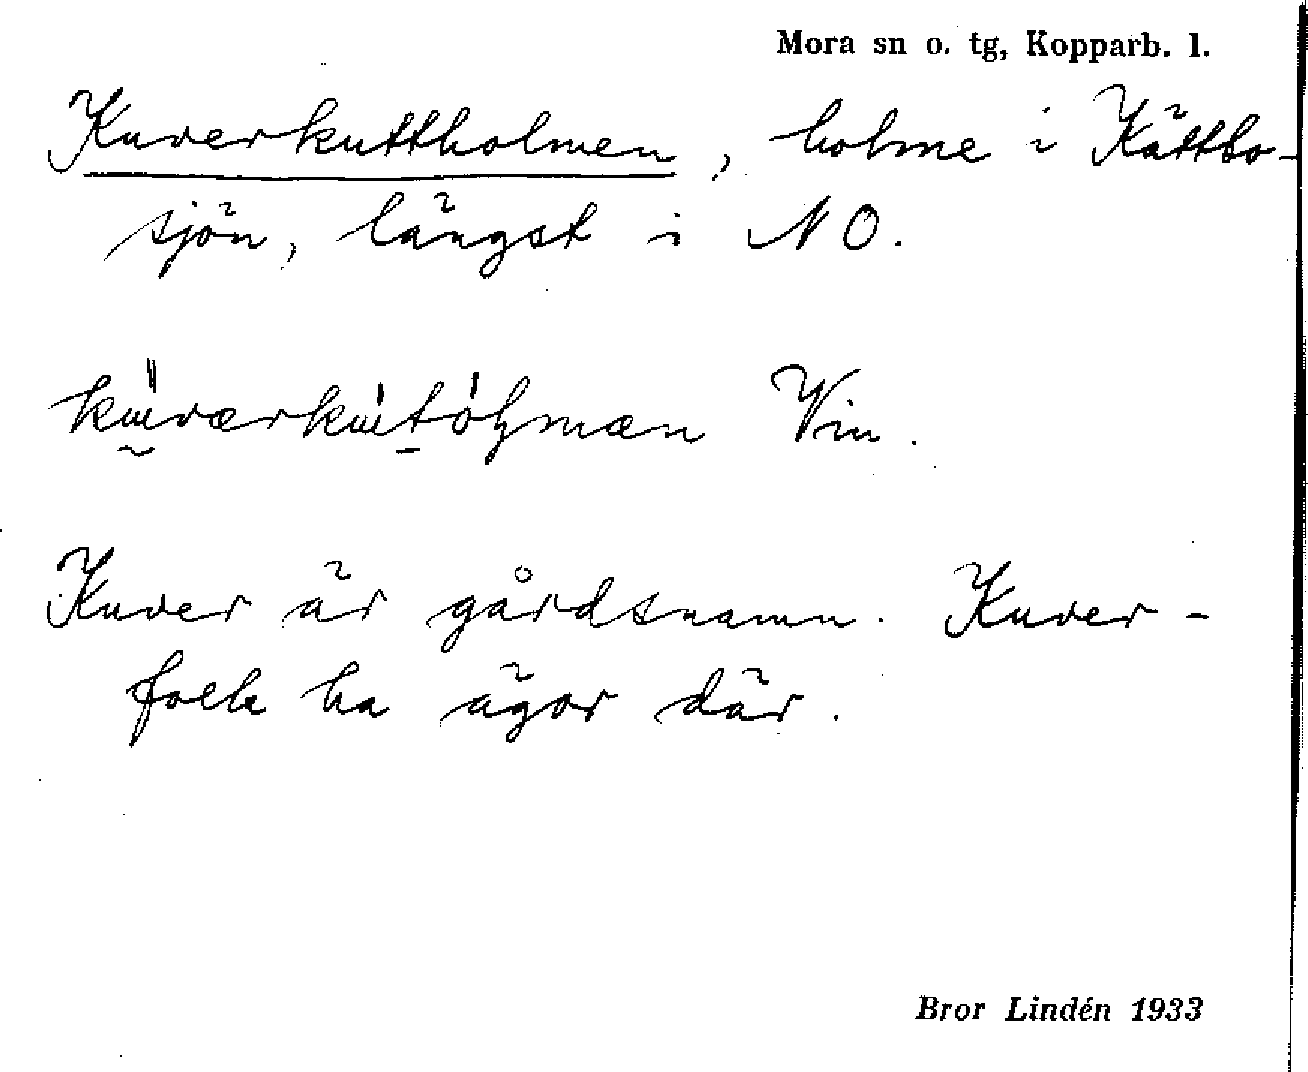 Mora sn o. tg, Kopparb. l.
Kuverkuttholmen, holme i Kättbo-
sjön, längst i NO.
Vin.
Kuver är gårdsnamn. Kuver-
folk ha ägor där.
Bror Lindén 1933